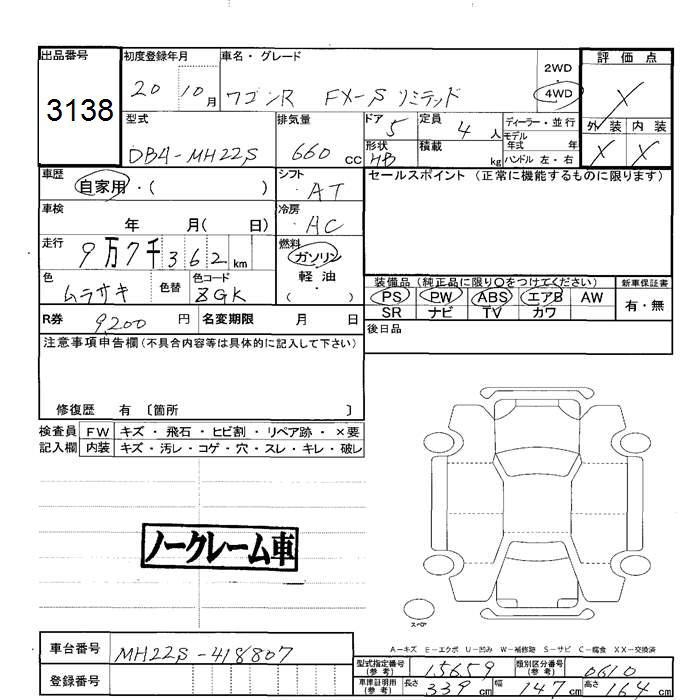 出品番号
3138
初度登録年月
20 10月
車名・グレード
ワゴンR FX-S リミテッド
2WD
4WD
評価点
X
外装 内装
X X
型式
DBA-MH22S
排気量
660 cc
ドア 5
形状 HB
定員 4 人
積載 kg
ディーラー・並行
モデル年式 年
ハンドル 左・右
車歴
自家用・( )
シフト
・AT
セールスポイント (正常に機能するものに限ります)
車検
年 月( 日)
冷房
・AC
走行
9万7千362km
燃料
ガソリン
軽油
( )
色
ムラサキ
色替
色コード
ZGK
装備品 (純正品に限り○をつけてください)
PS PW ABS エアB AW
SR ナビ TV カワ
新車保証書
有・無
R券 9,200 円
名変期限 月 日
後日品
注意事項申告欄(不具合内容等は具体的に記入して下さい)
修復歴 有 〔箇所 〕
検査員
記入欄
FW キズ・飛石・ヒビ割・リペア跡・×要
内装 キズ・汚レ・コゲ・穴・スレ・キレ・破レ
ノークレーム車
スペア
A-キズ E-エクボ U-凹み W-補修跡 S-サビ C-腐食 XX-交換済
車台番号
MH22S-418807
登録番号
型式指定番号
(参考)
15659
類別区分番号
(参考)
0610
車庫証明用
(参考)
長さ 339 cm
幅 147 cm
高さ 164 cm